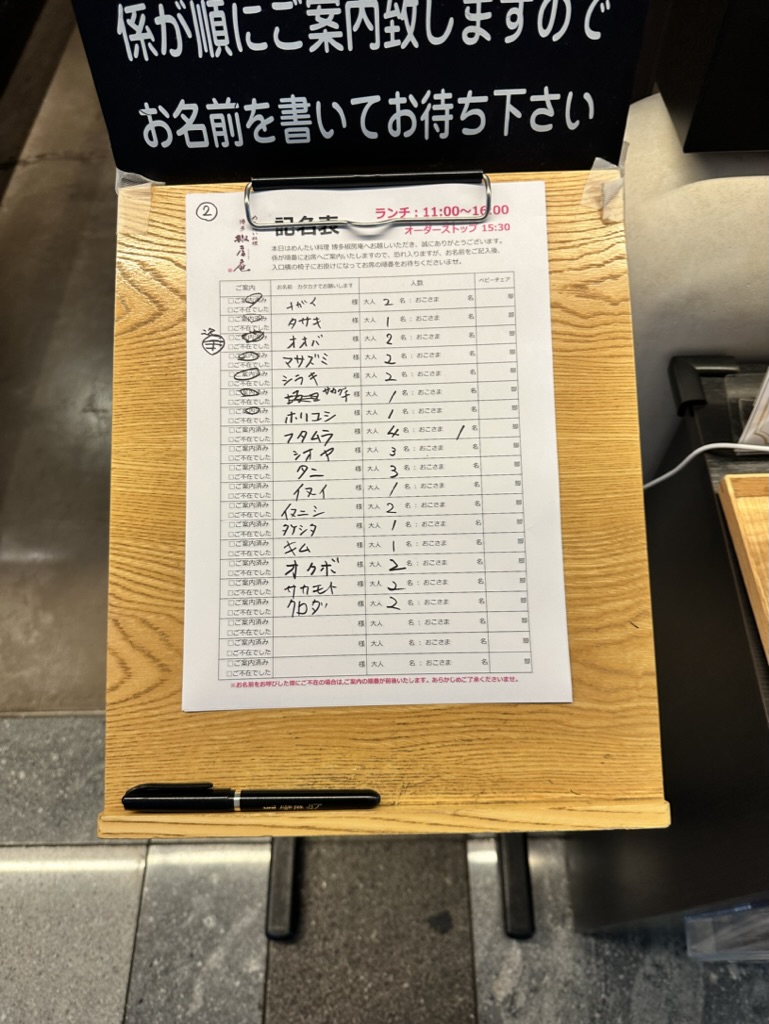 係が順にご案内致しますので
お名前を書いてお待ち下さい
②
めんたい料理
博多 椒房庵
記名表
ランチ：11:00〜16:00
オーダーストップ 15:30
本日はめんたい料理 博多椒房庵へお越しいただき、誠にありがとうございます。
係が順番にお席へご案内いたしますので、恐れ入りますが、お名前をご記入後、
入口横の椅子にお掛けになってお席の順番をお待ちくださいませ。
ご案内 お名前 カタカナでお願いします 人数 ベビーチェア
□ご案内済み □ご不在でした ナガイ 様 大人 2 名：おこさま 名 脚
□ご案内済み □ご不在でした タサキ 様 大人 1 名：おこさま 名 脚
□ご案内済み □ご不在でした オオバ 様 大人 2 名：おこさま 名 脚
□ご案内済み □ご不在でした マサズミ 様 大人 2 名：おこさま 名 脚
□ご案内済み □ご不在でした シラキ 様 大人 2 名：おこさま 名 脚
□ご案内済み □ご不在でした サカグチ 様 大人 1 名：おこさま 名 脚
□ご案内済み □ご不在でした ホリコシ 様 大人 1 名：おこさま 名 脚
□ご案内済み □ご不在でした フタムラ 様 大人 4 名：おこさま 1 名 脚
□ご案内済み □ご不在でした シオヤ 様 大人 3 名：おこさま 名 脚
□ご案内済み □ご不在でした タニ 様 大人 3 名：おこさま 名 脚
□ご案内済み □ご不在でした イヌイ 様 大人 1 名：おこさま 名 脚
□ご案内済み □ご不在でした イマニシ 様 大人 2 名：おこさま 名 脚
□ご案内済み □ご不在でした タケシタ 様 大人 1 名：おこさま 名 脚
□ご案内済み □ご不在でした キム 様 大人 1 名：おこさま 名 脚
□ご案内済み □ご不在でした オクボ 様 大人 2 名：おこさま 名 脚
□ご案内済み □ご不在でした サカモト 様 大人 2 名：おこさま 名 脚
□ご案内済み □ご不在でした クロダ 様 大人 2 名：おこさま 名 脚
□ご案内済み □ご不在でした 様 大人 名：おこさま 名 脚
□ご案内済み □ご不在でした 様 大人 名：おこさま 名 脚
□ご案内済み □ご不在でした 様 大人 名：おこさま 名 脚
※お名前をお呼びした際にご不在の場合は、ご案内の順番が前後いたします。あらかじめご了承くださいませ。